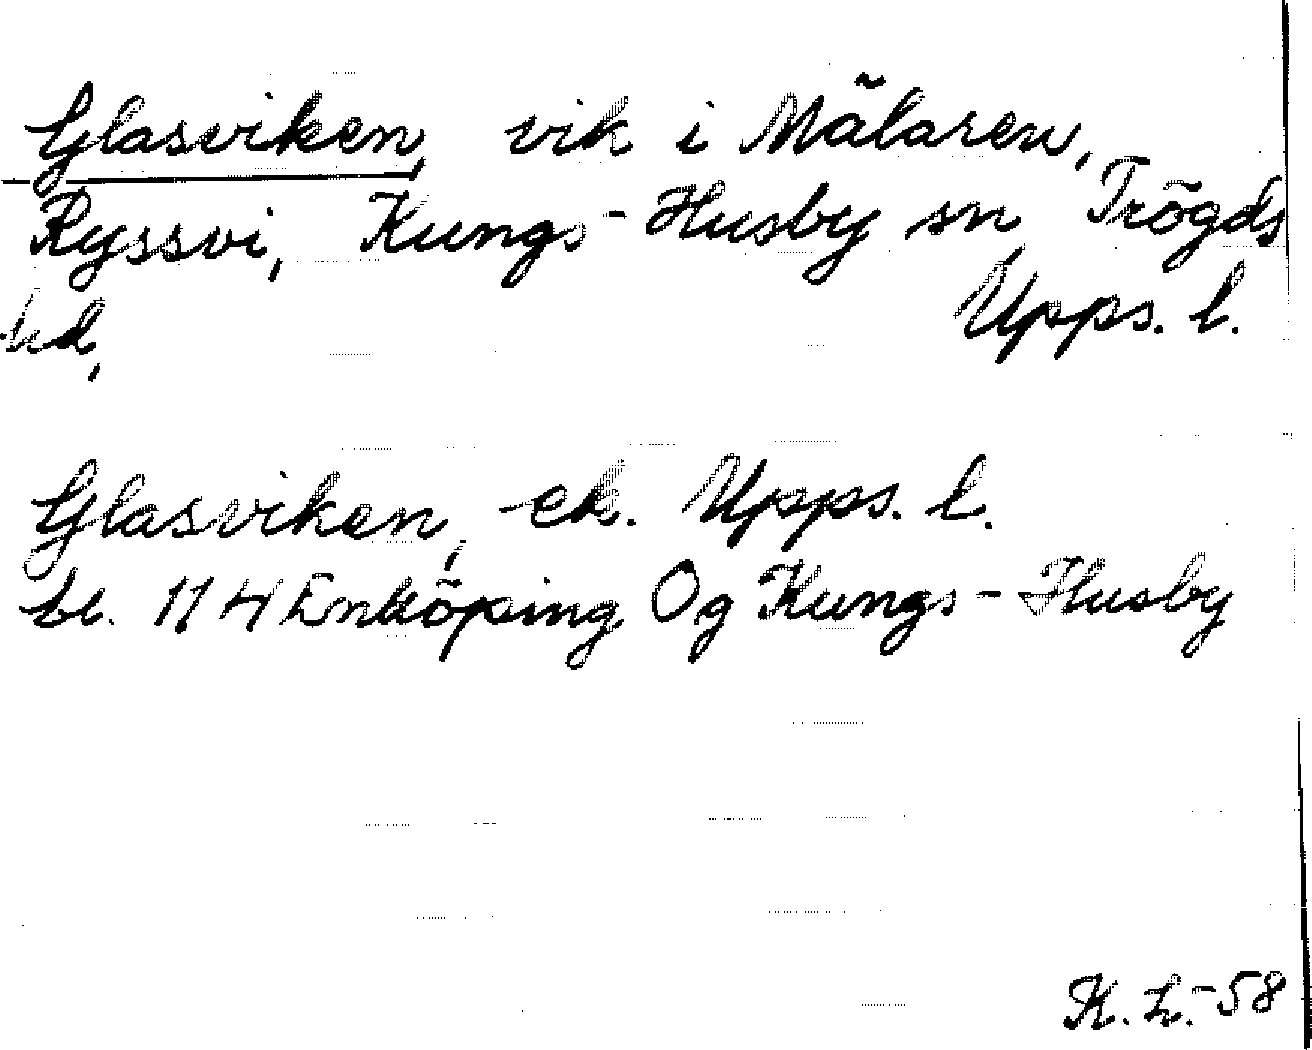 Glasviken, vik i Mälaren,
Ryssvi, Kungs-Husby sn, Trögds
hd, Upps. l.
Glasviken, ek. Upps. l.
bl. 114 Enköping Og Kungs-Husby
K. L. -58